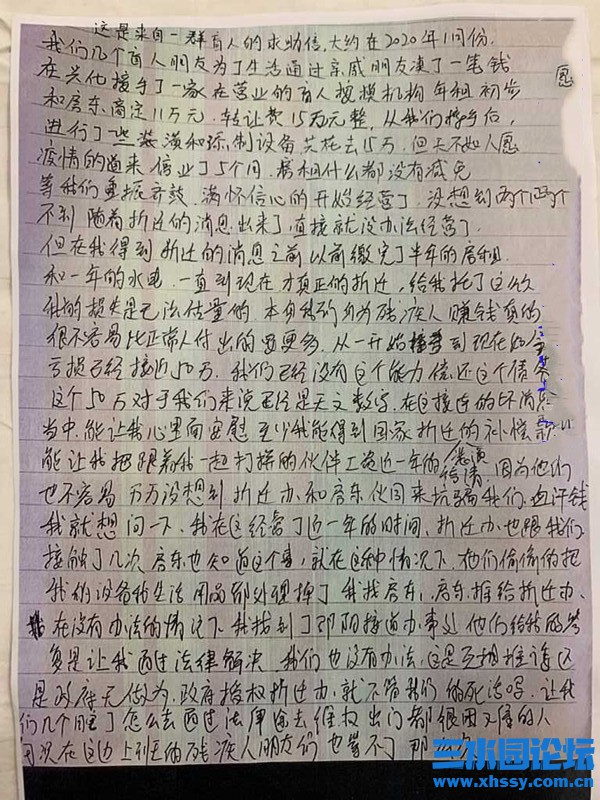 这是来自一群盲人的求助信,大约在2020年1月份,
我们几个盲人朋友为了生活通过亲戚朋友凑了一笔钱
在兴化接手了一家在营业的盲人按摩机构 年租 初步
和房东商定11万元. 转让费15万元整. 从我们接手后,
进行了一些装潢和添制设备 共花去15万. 但天不如人愿
愿
疫情的道来 停业了5个月. 房租什么都没有减免
等我们重振齐鼓. 满怀信心的开始经营了. 没想到两个月
不到 随着折迁的消息出来了,直接就没办法经营了.
但在我得到折迁的消息之前 以前缴完了半年的房租
和一年的水电. 一直到现在才真正的折迁,给我
的损失是无法估量的. 本身我们身为残疾人 赚钱真的
很不容易 比正常人付出的要更多. 从一开始接手到现在
亏损已经接近50万. 我们已经没有这个能力偿还这个债务
这个50万对于我们来说已经是天文数字. 在这接连的坏消息
当中. 能让我心里面安慰 至少我能得到国家折迁的补偿款
能让我把跟着我一起打拼的伙伴工资近一年的 结清 因为他们
也不容易 万万没想到 折迁办、和房东伙同来坑骗我们血汗钱
我就想问一下. 我在这经营了近一年的时间. 折迁办也跟我们
接触了几次 房东也知道这个事,就在这种情况下. 他们偷偷的把
我的设备和生活用品都处理掉了 我找房东,房东推给折迁办、
在没有办法的情况下 我找到了昭阳接道办事处 他们给我的答
复是让我通过法律解决 我们也没有办法,这是互相推诿
是政府无做为,政府授权折迁办,就不管我们的死活吗. 让我
们几个 怎么去通过法律途去维权 出门都很困难的人
何况在这边上班的残疾人朋友们 也等不了那
三水园论坛
www.xhssy.com.cn